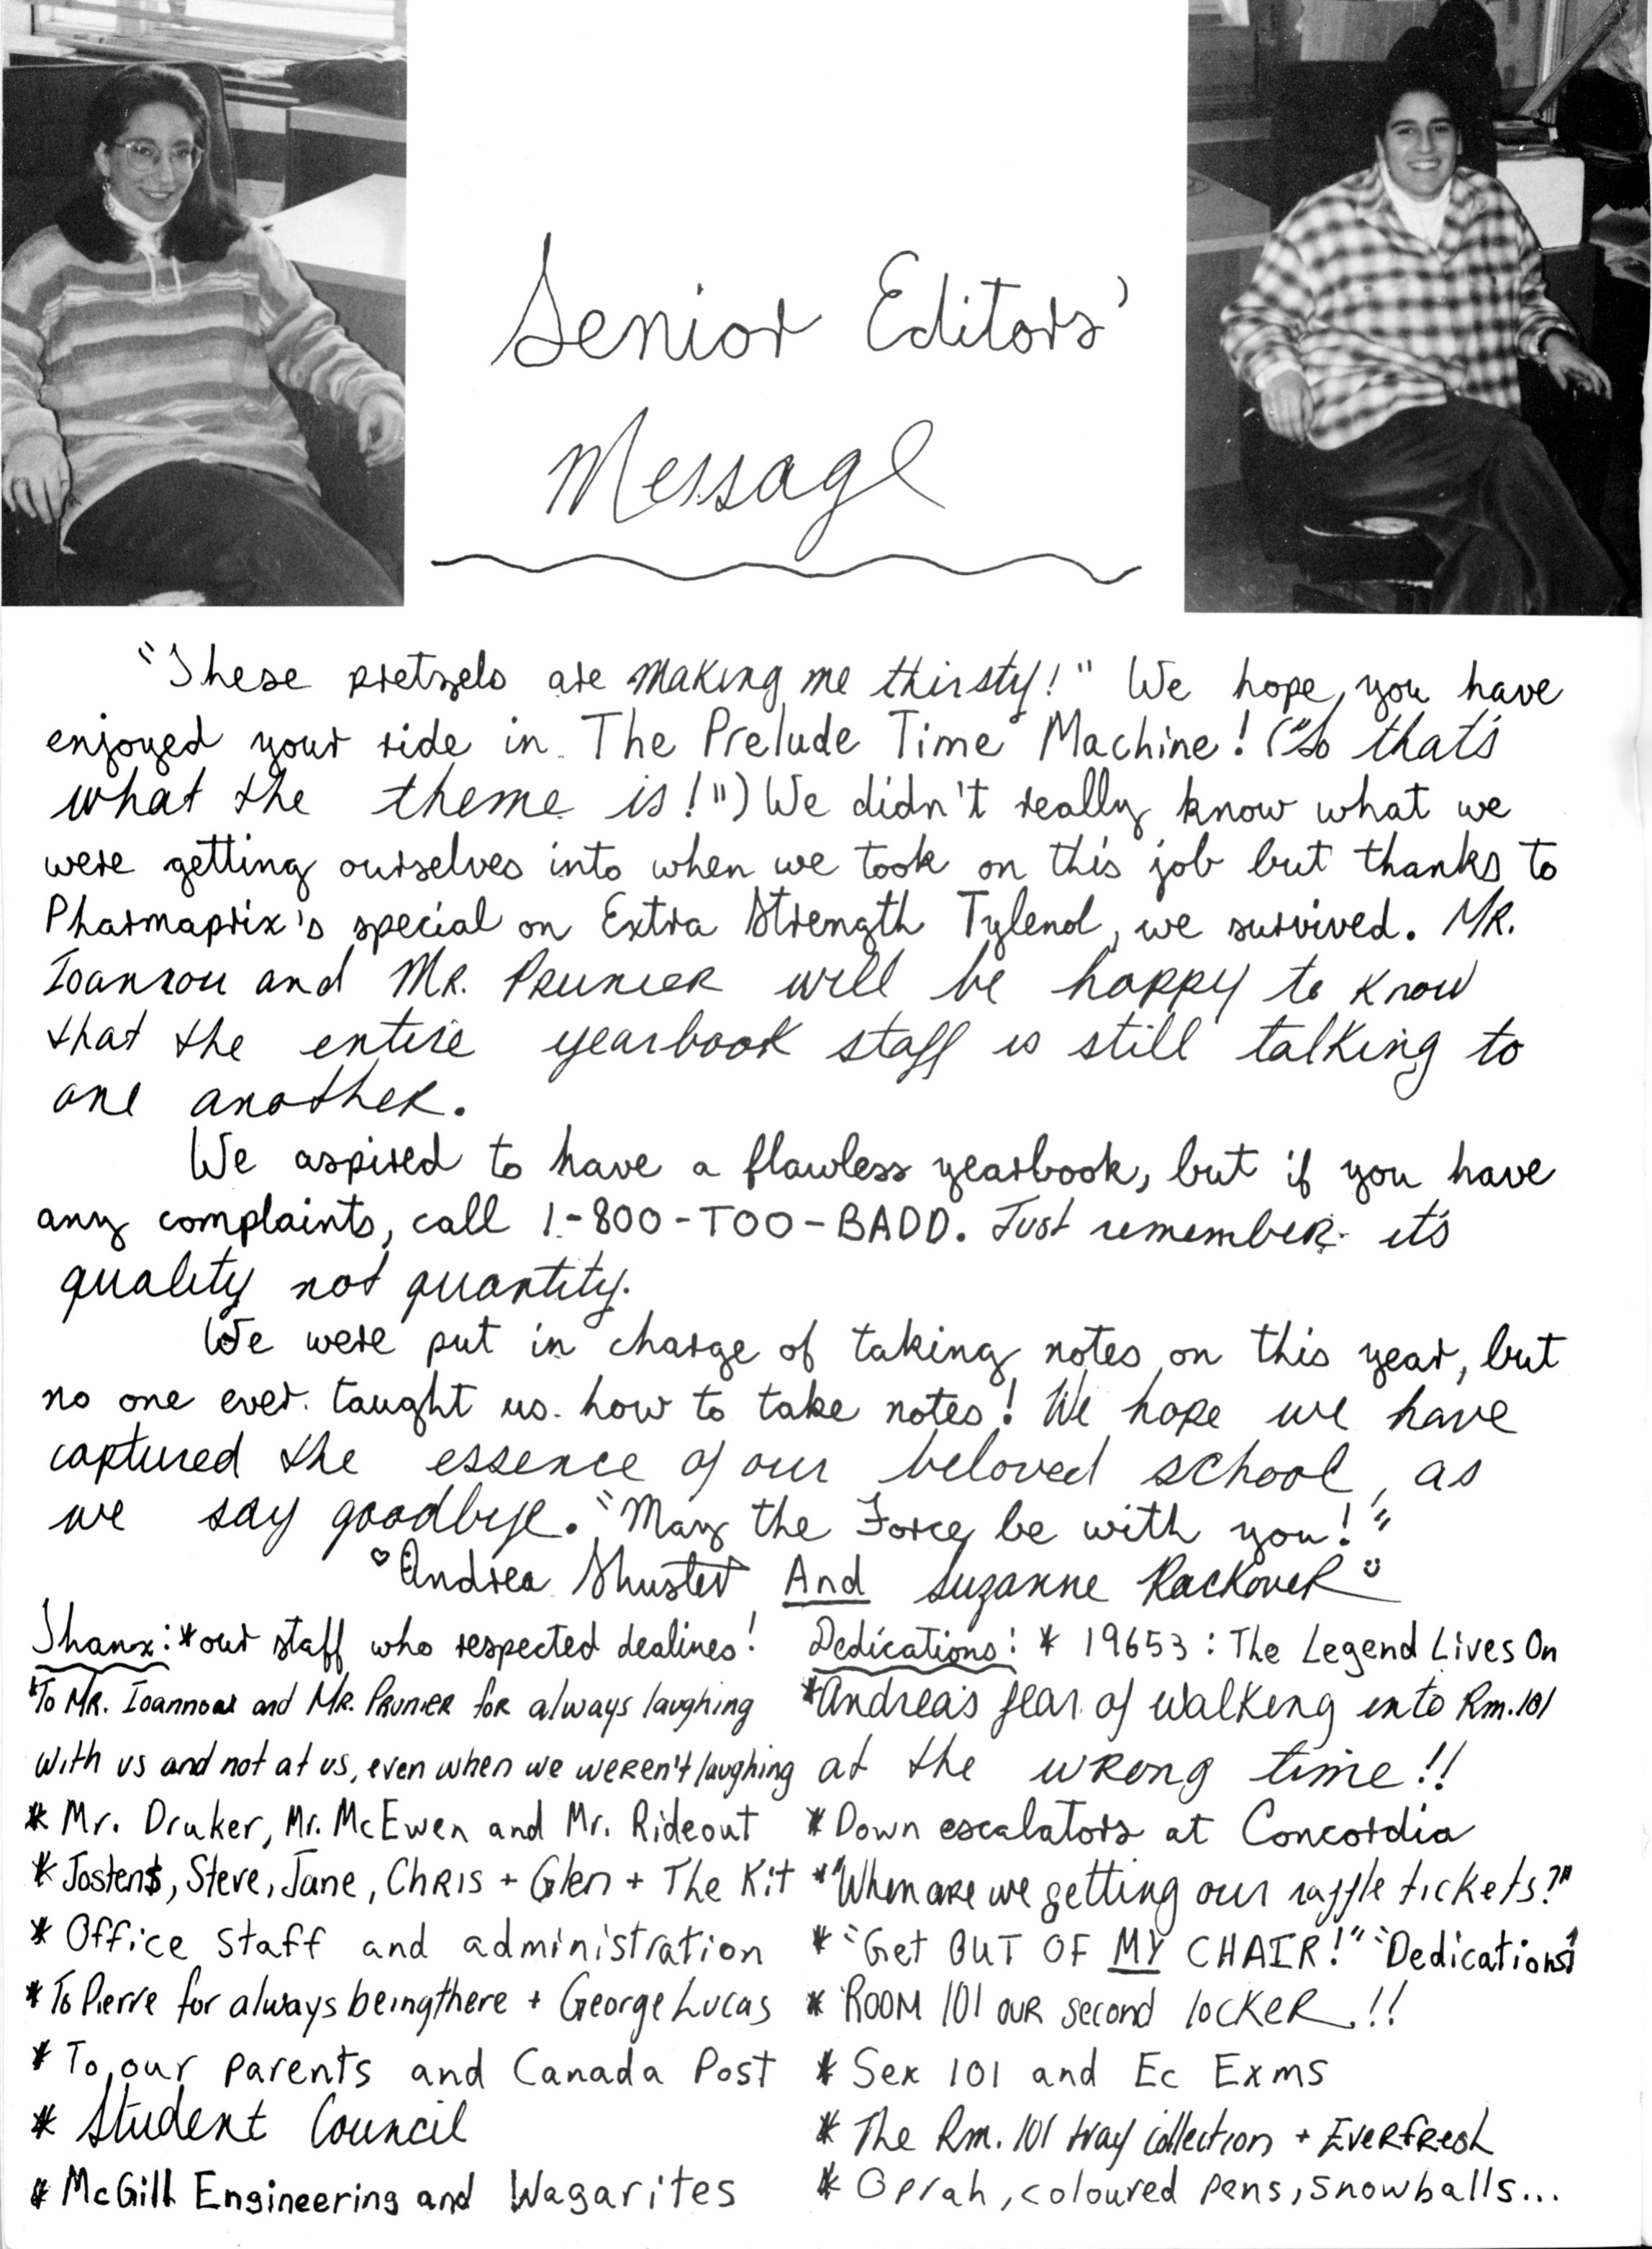 Senior Editors'
Message
"These pretzels are making me thirsty!" We hope, you have
enjoyed your ride in The Prelude Time Machine! ("So that's
what the theme is!") We didn't really know what we
were getting ourselves into when we took on this job but thanks to
Pharmaprix's special on Extra Strength Tylenol, we survived. MR.
Ioannou and MR. PRUNIER will be happy to know
that the entire yearbook staff is still talking to
one another.
We aspired to have a flawless yearbook, but if you have
any complaints, call 1-800-TOO-BADD. Just remember- it's
quality not quantity.
We were put in charge of taking notes on this year, but
no one ever taught us how to take notes! We hope we have
captured the essence of our beloved school, as
we say goodbye. "May the Force be with you!"
♡Andrea Shuster And Suzanne Rackover☺
Thanx: *our staff who respected dealines!
*To MR. Ioannou and MR. PRUNIER for always laughing
with us and not at us, even when we weren't laughing
* Mr. Druker, Mr. McEwen and Mr. Rideout
* Josten$, Steve, Jane, Chris + Glen + The Kit
* Office staff and administration
* To Pierre for always being there + George Lucas
* To our parents and Canada Post
* Student Council
* McGill Engineering and Wagarites
Dedications: * 19653: The Legend Lives On
*Andrea's fear of walking into Rm. 101
at the wrong time!!
*Down escalators at Concordia
*"When are we getting our raffle tickets?"
*"Get OUT OF MY CHAIR!" "Dedications"
* ROOM 101 our second locker!!
* Sex 101 and Ec Exms
* The Rm. 101 tray collection + Everfresh
* Oprah, coloured pens, snowballs...